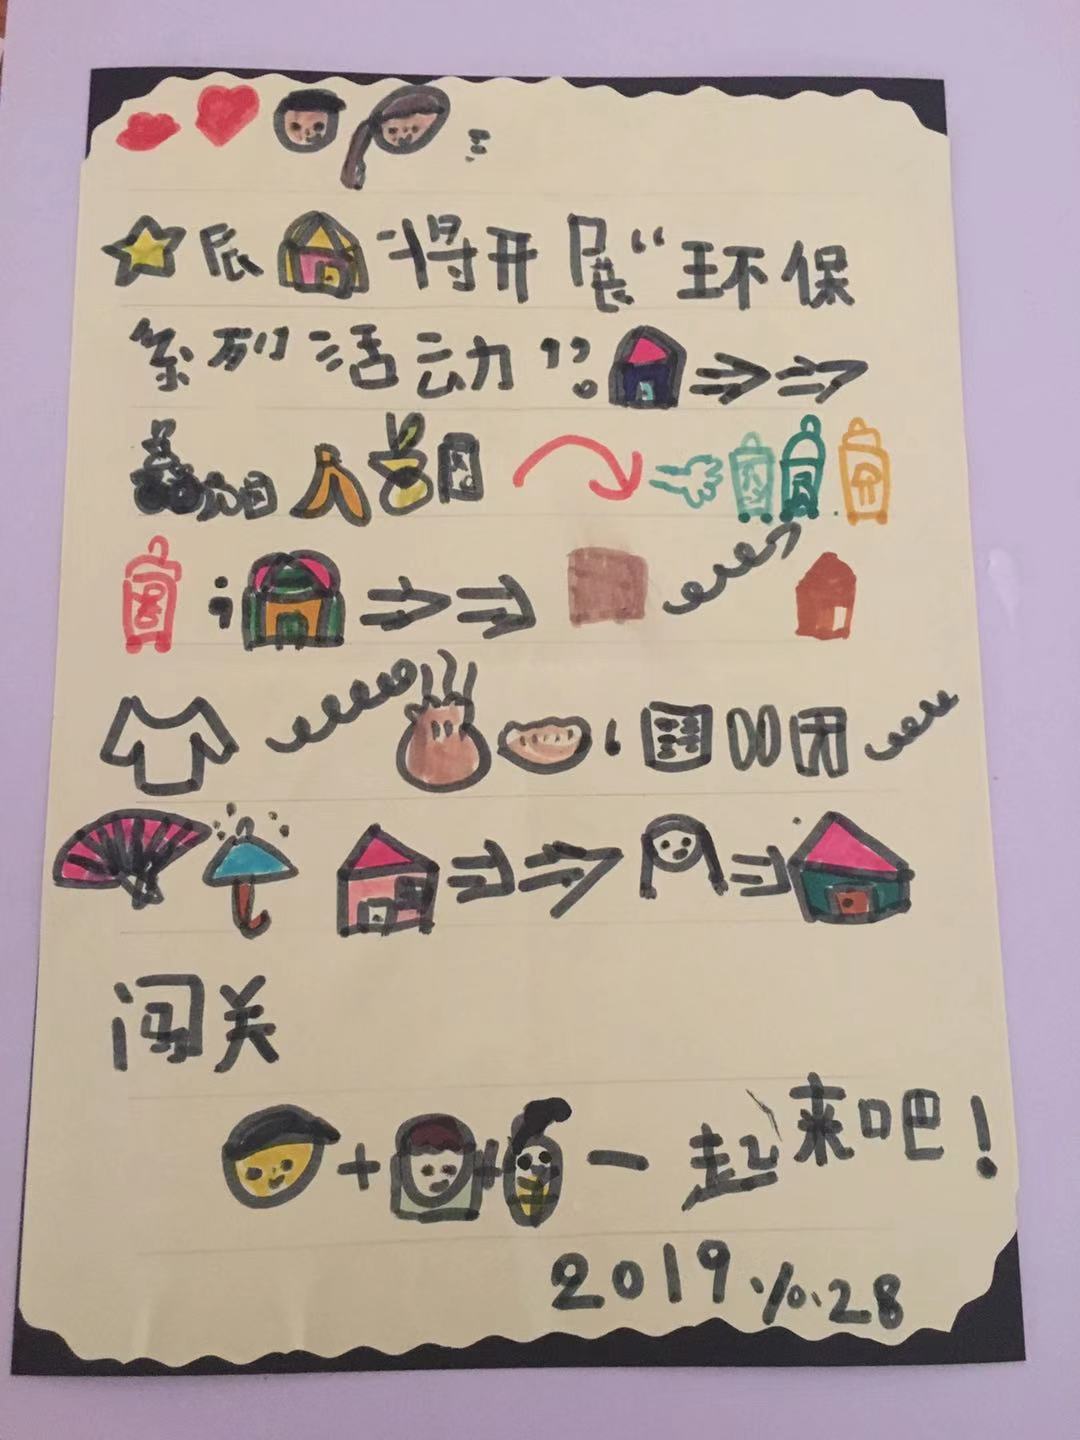 ：
辰 将开展“环保
系列活动”。
；
，
闯关
+ + 一起来吧！
2019.10.28